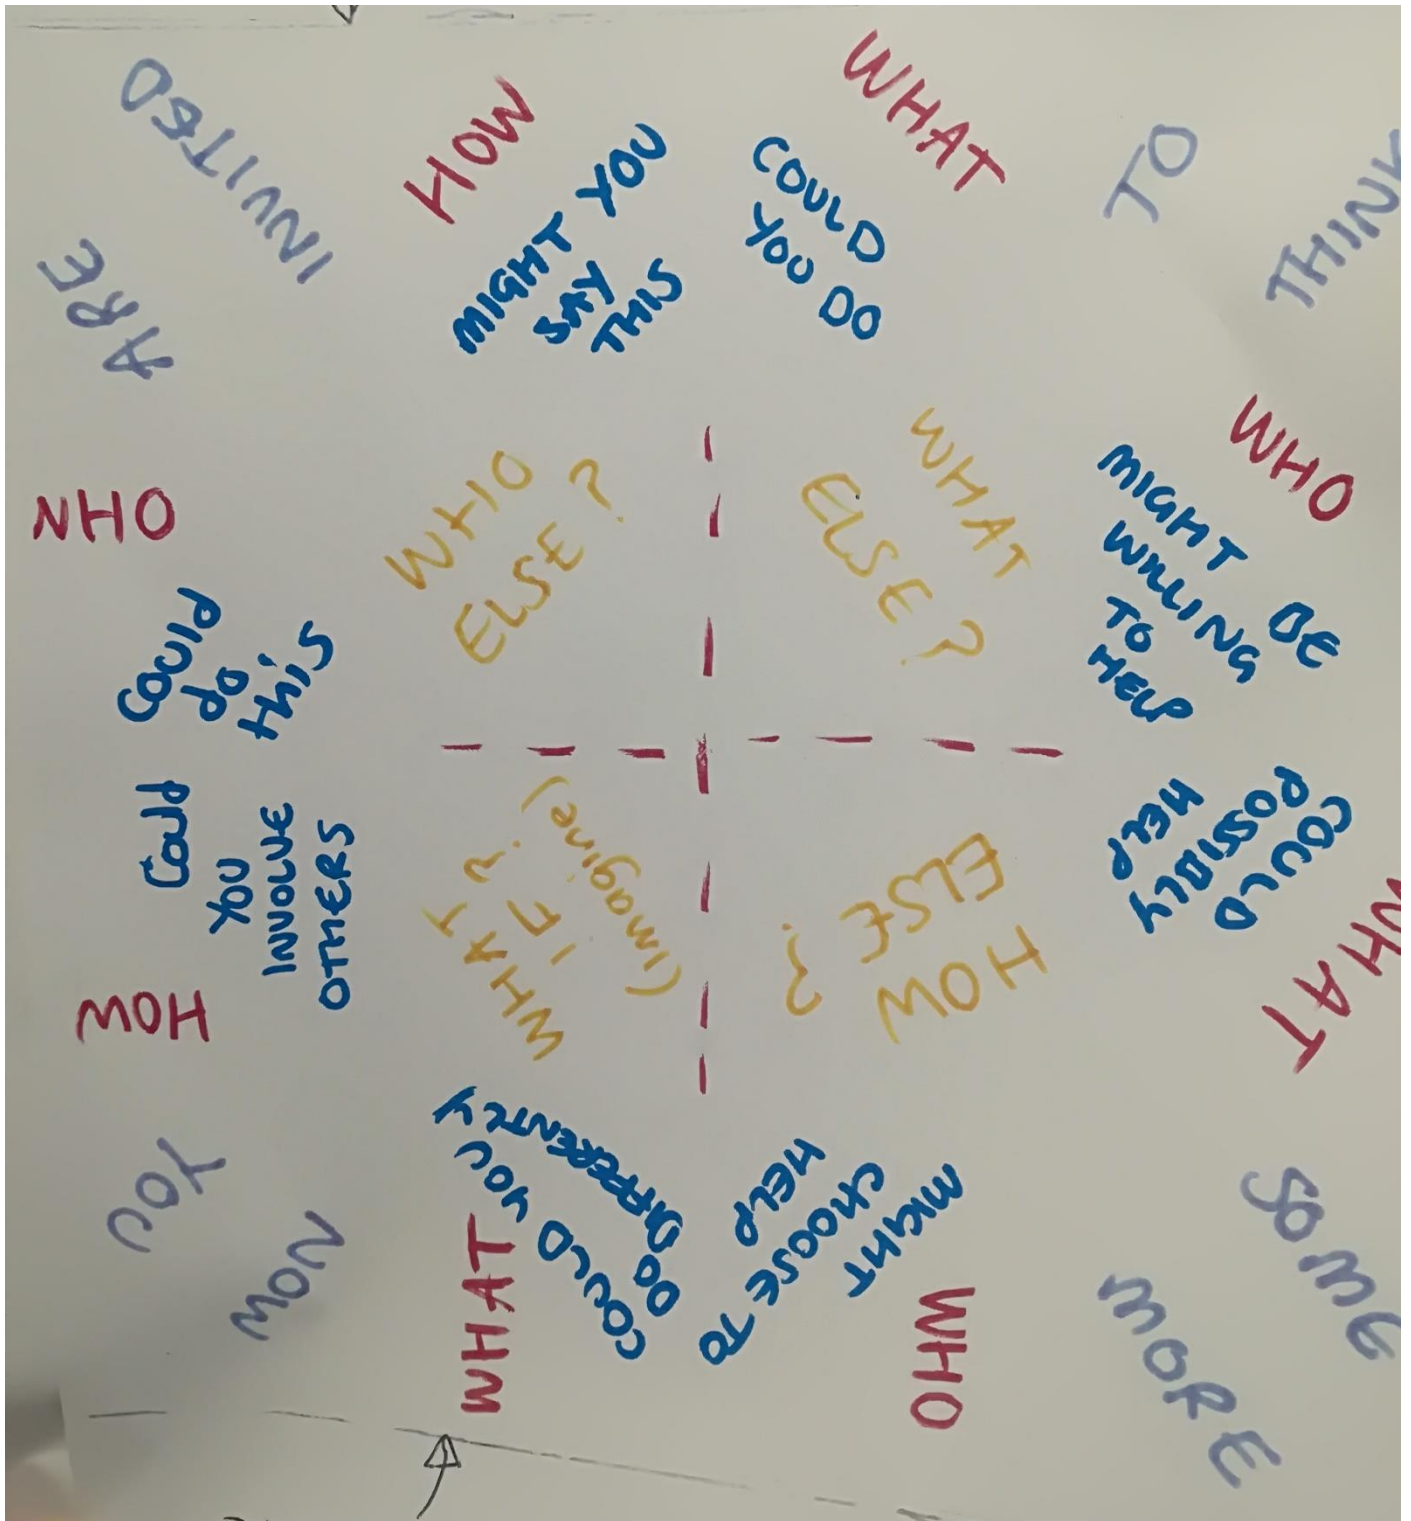 NOW
YOU
ARE
INVITED
TO
THINK
SOME
MORE
HOW
MIGHT YOU
SAY
THIS
WHAT
COULD
YOU DO
WHO
MIGHT BE
WILLING
TO
HELP
WHAT
COULD
POSSIBLY
HELP
WHO
MIGHT
CHOOSE TO
HELP
WHAT
COULD YOU
DO
DIFFERENTLY
HOW
Could
YOU
INVOLVE
OTHERS
WHO
Could
do
this
WHO
ELSE?
WHAT
ELSE?
HOW
ELSE
?
WHAT
IF?
(imagine)